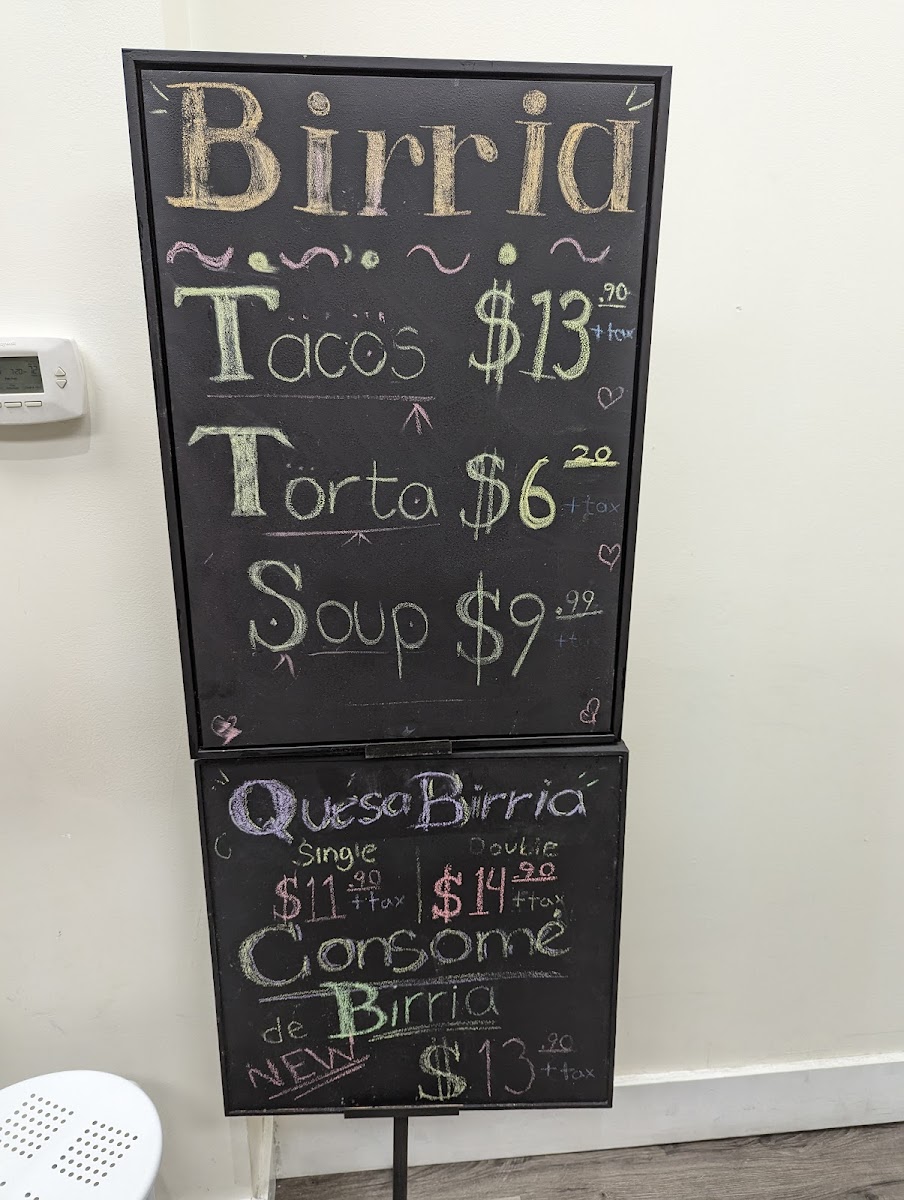 Birria
Tacos $13.90 + tax
Torta $6.20 + tax
Soup $9.99 + tax
QuesaBirria
Single Double
$11.90 + tax $14.90 + tax
Consomé
de Birria
NEW $13.90 + tax